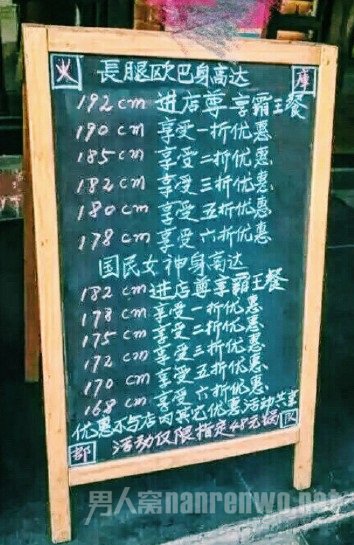 火 長腿欧巴身高达 摩
192cm 进店尊享霸王餐
190cm 享受一折优惠
185cm 享受二折优惠
182cm 享受三折优惠
180cm 享受五折优惠
178cm 享受六折优惠
国民女神身高达
182cm 进店尊享霸王餐
178cm 享受一折优惠
175cm 享受二折优惠
172cm 享受三折优惠
170cm 享受五折优惠
168cm 享受六折优惠
优惠不与店内其它优惠活动共享
部 活动仅限指定48元锅
男人窝nanrenwo.net